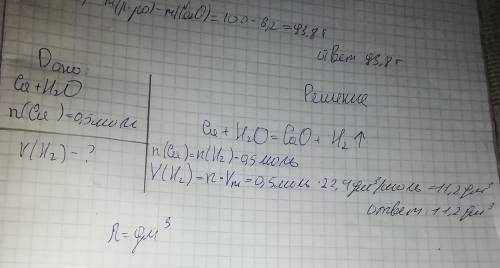 m(р-ра)-m(CaO)=100-6,2=93,8г
ответ 93,8г
Дано:
Ca+H2O
n(Ca)=0,5моль
V(H2)-?
Решение
Ca+H2O=CaO+H2↑
n(Ca)=n(H2)=0,5моль
V(H2)=n·Vm=0,5моль·22,4дм³/моль=11,2дм³
ответ:11,2дм³
Л=дм³